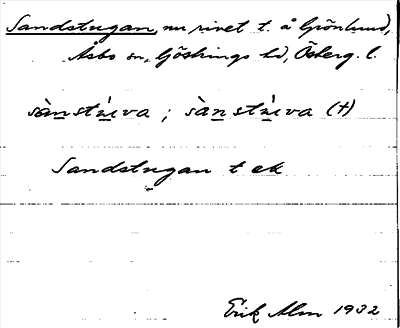 Sandstugan, nu rivet t. å Grönlund,
Åsbo sn, Göstrings hd, Österg. l.
sànstùɩva ; sànstùɩva (†)
Sandstugan t ek
Erik Alm 1932